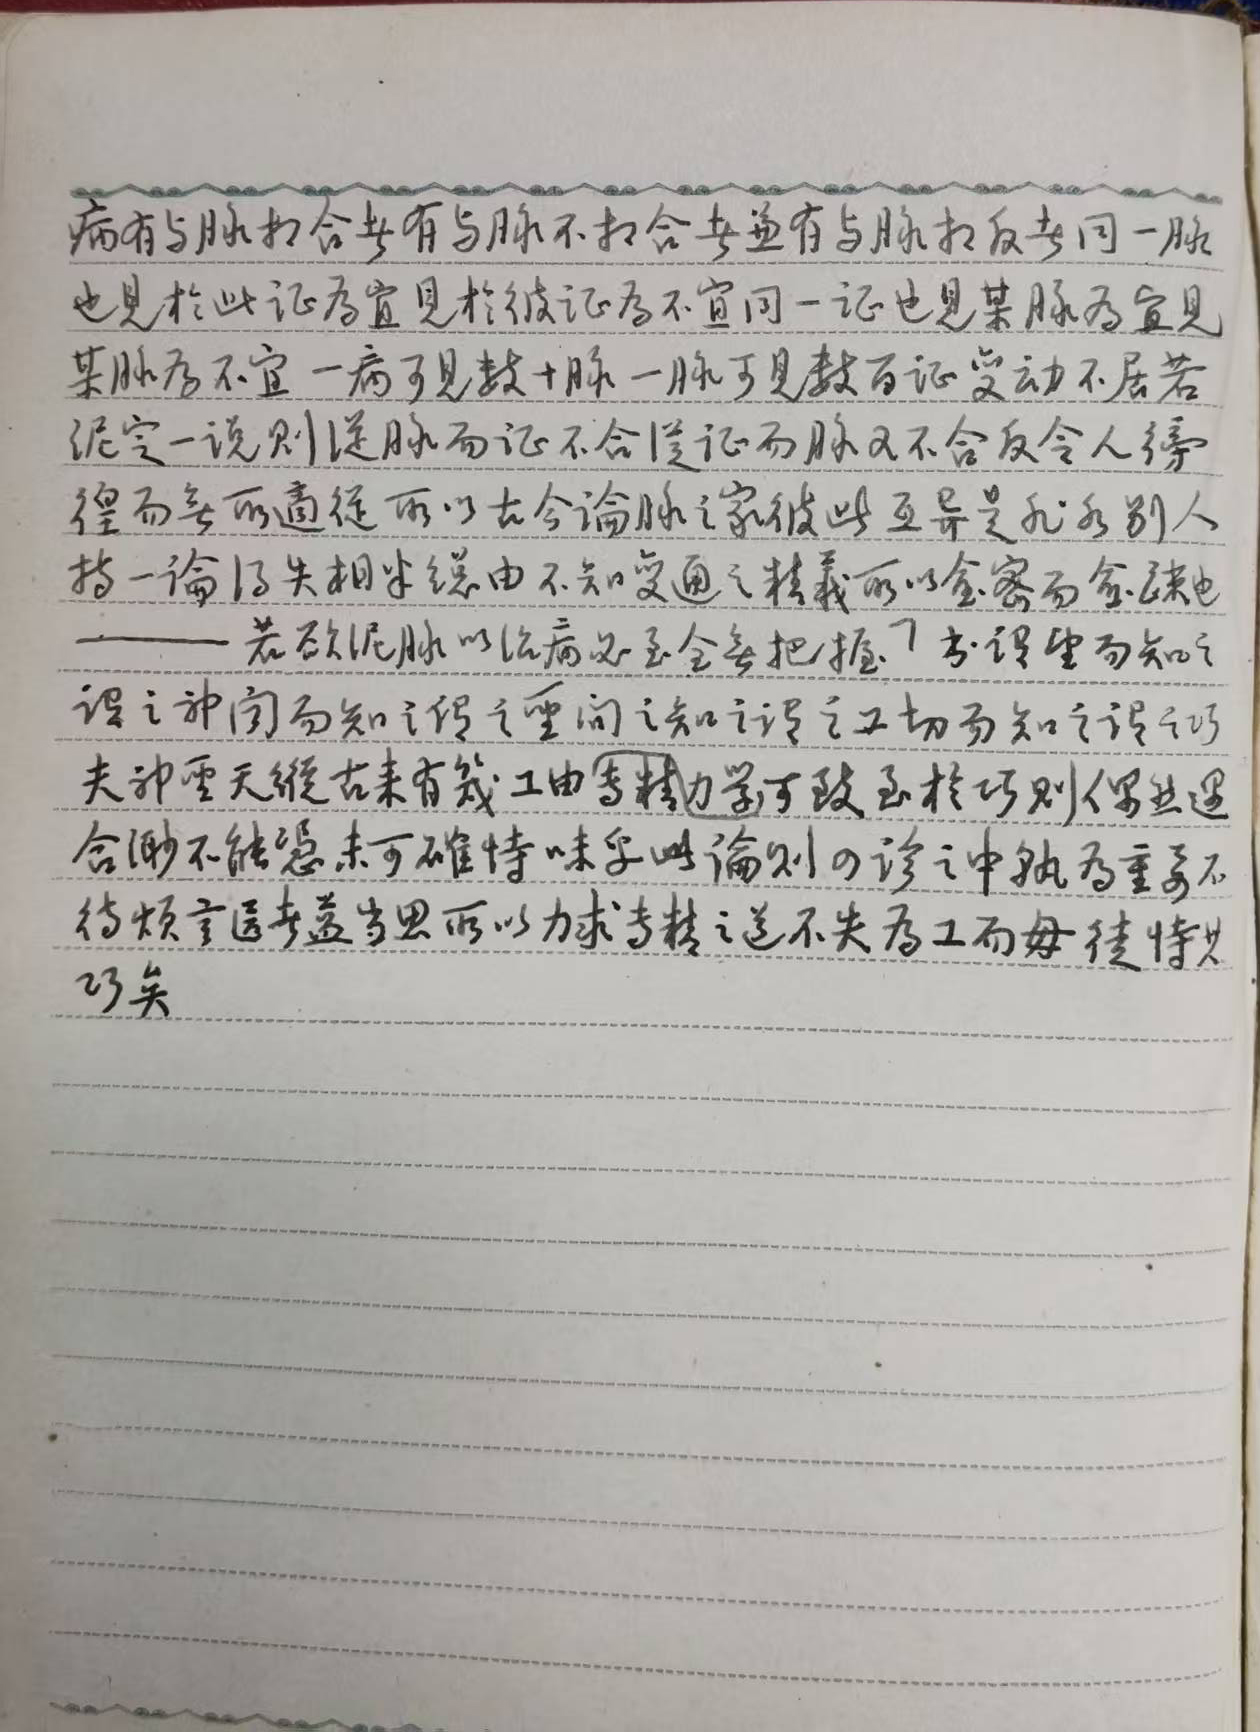 病有与脉相合者有与脉不相合者兼有与脉相反者同一脉
也见於此证为宜见於彼证为不宜同一证也见某脉为宜见
某脉为不宜一病可见数十脉一脉可见数百证变动不居若
泥定一说则從脉而证不合從证而脉又不合反令人徬
徨而无所適從所以古今論脉之家彼此互异是非各别人
持一論得失相半總由不知变通之精義所以愈密而愈疎也
——若欲泥脉以治病必至全无把握「书谓望而知之
谓之神闻而知之谓之聖问之知之谓之工切而知之谓之巧
夫神聖天縱古来有幾工由专精力學可致至於巧则偶然遇
合渺不能憑未可確恃味乎此論则四诊之中孰为重要不
待烦言医者益当思所以力求专精之道不失为工而毋徒恃其
巧矣